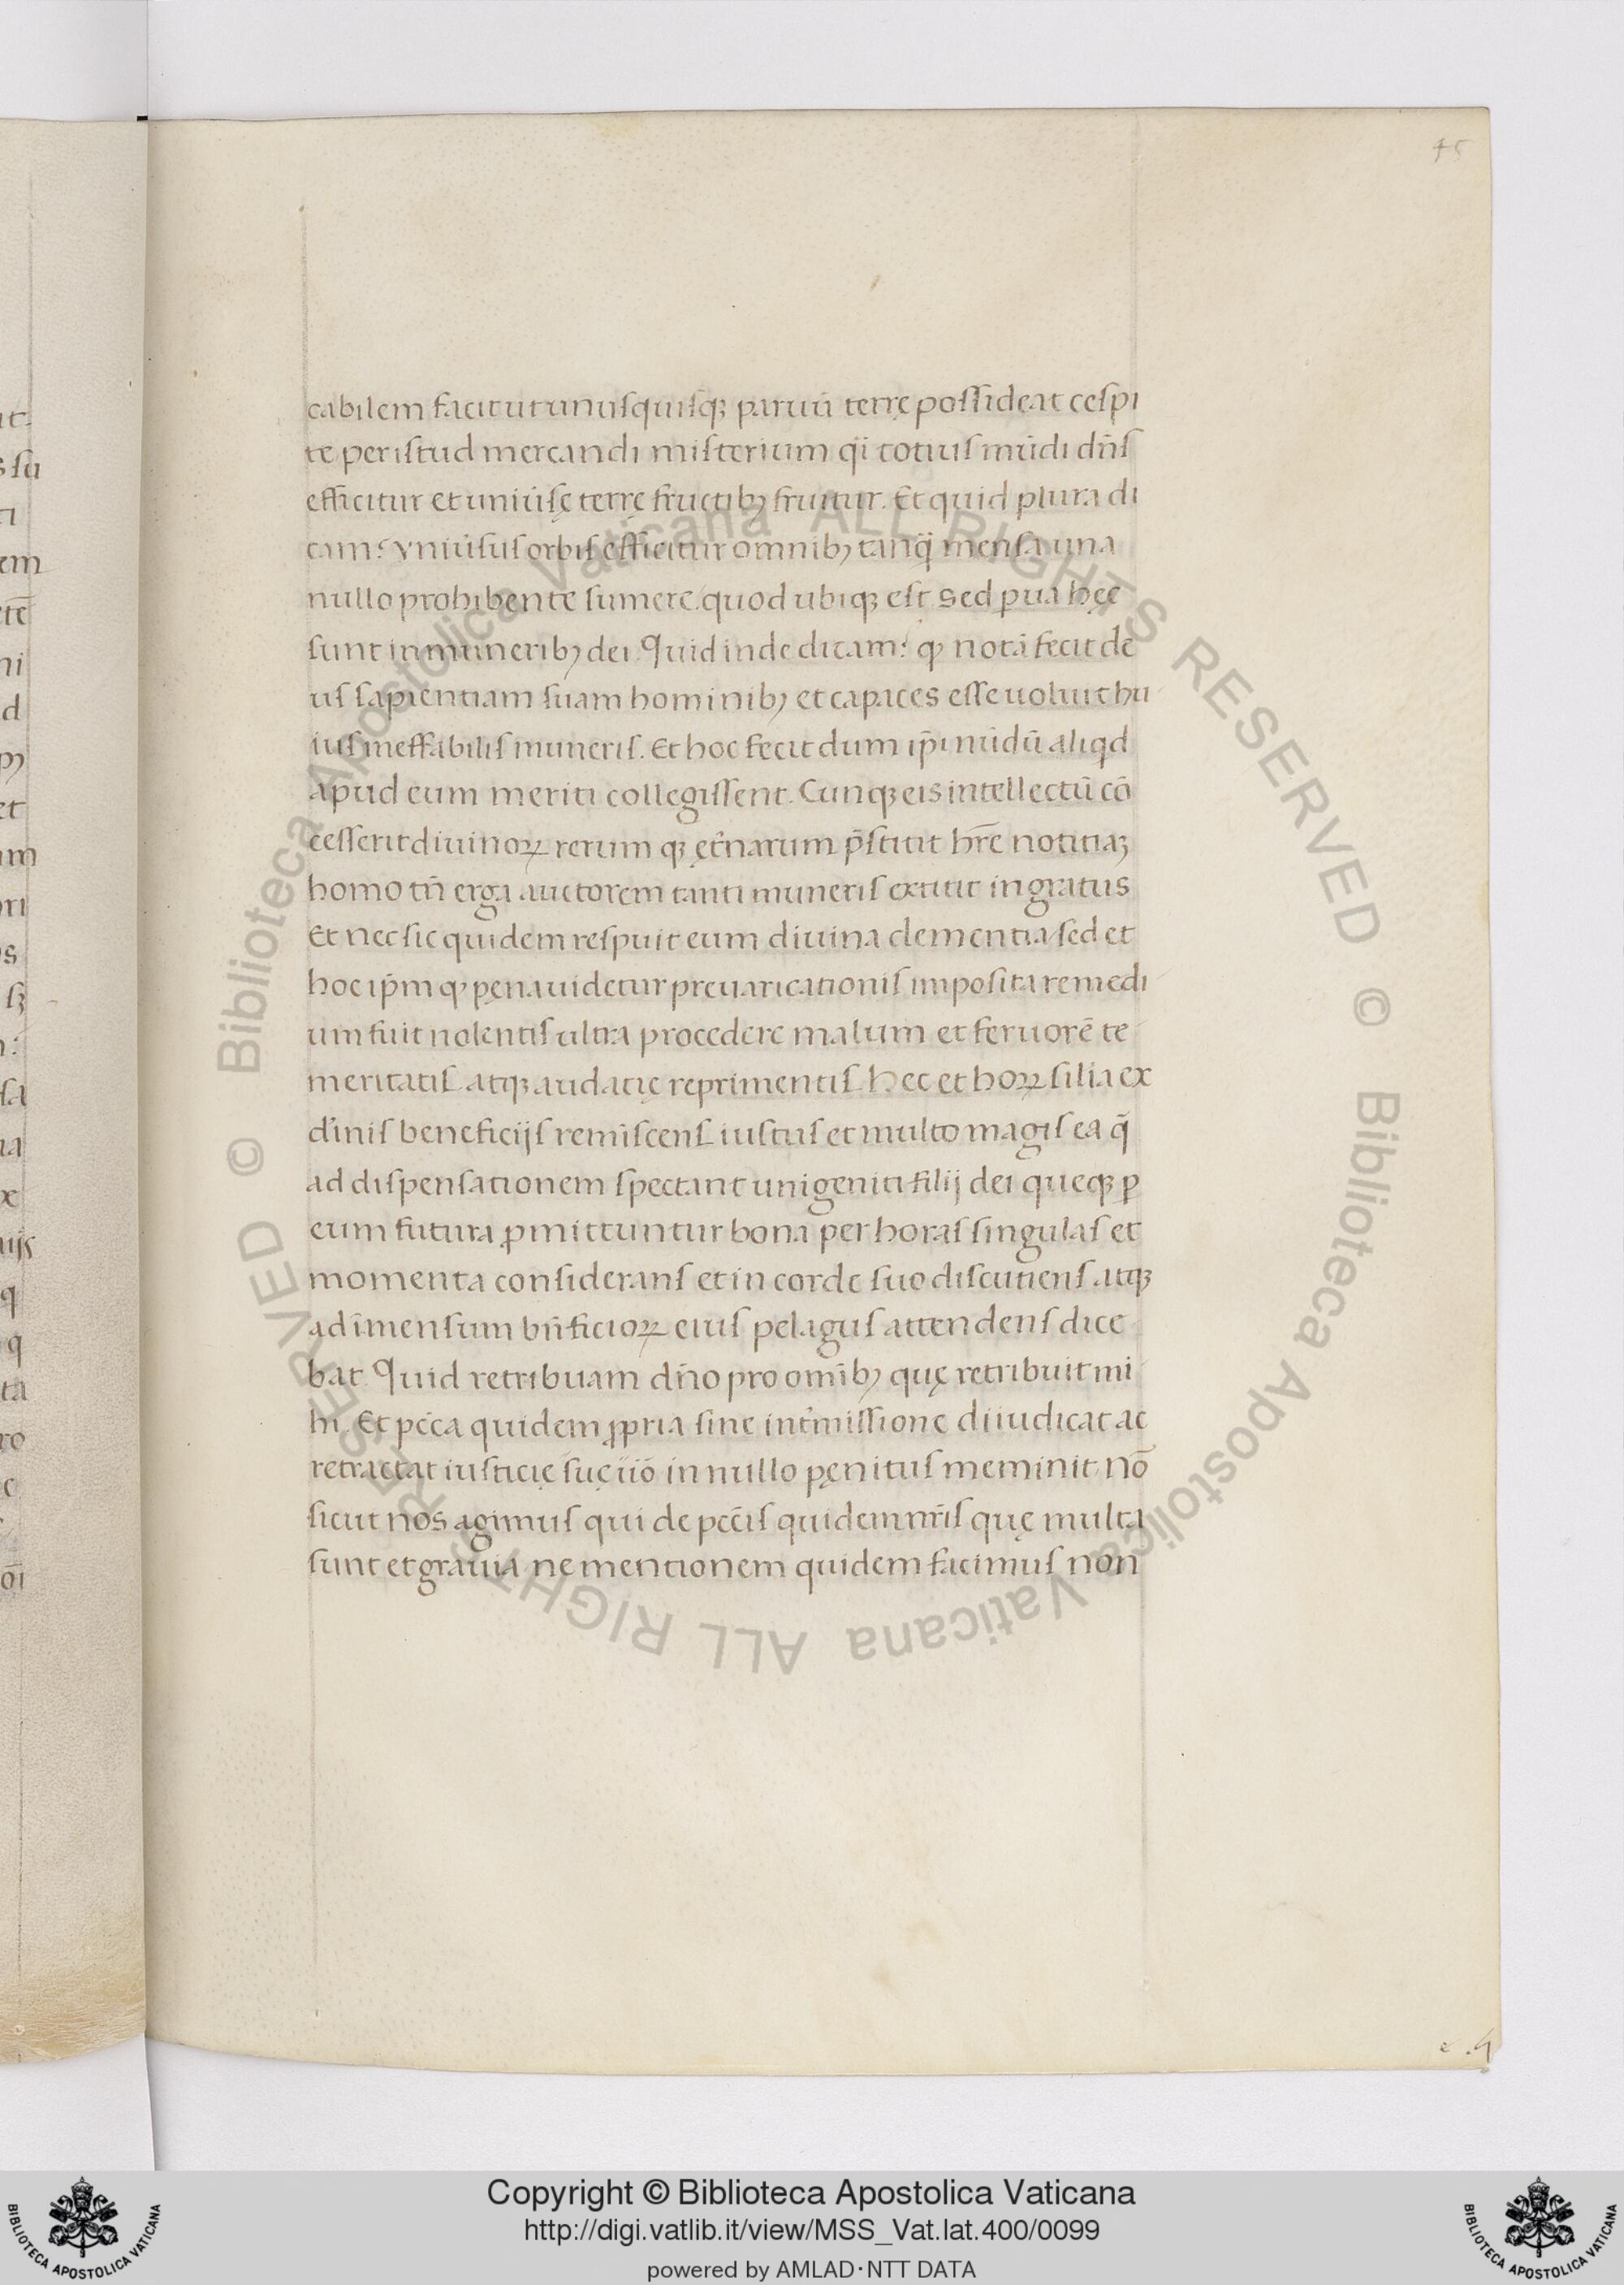 45
cabilem facit ut unusquisq̃ꝫ paruũ terrę possideat cespi
te per istud mercandi misterium q̈i totius mũdi dñs
efficitur et uniũsę terrę fructibꝫ fruitur. Et quid plura di
cam? Vniũsus orbis efficitur omnibꝫ tanq̈ mensa una
nullo prohibente sumere quod ubiqꝫ est. Sed ꝑua hęc
sunt in muneribꝫ dei. Quid inde dicam? ꝙ notã fecit de
us sapientiam suam hominibꝫ et capaces esse uoluit hu
ius ineffabilis muneris. Et hoc fecit dum ip̃i nũdũ aliqd
apud eum meriti collegissent. Cunqꝫ eis intellectũ cõ
cesserit diuinoꝝ rerum qꝫ ęt̃narum p̃stitit hr̃e notitiaꝫ
homo tñ erga auctorem tanti muneris extitit ingratus
Et nec sic quidem respuit eum diuina clementia sed et
hoc ip̃m ꝙ pęna uidetur preuaricationis imposita remedi
um fuit nolentis ultra procedere malum et feruorẽ te
meritatis atqꝫ audacię reprimentis. Hec et hoꝝ silia ex
d̃inis beneficijs remĩscens iustus et multo magis ea q̃
ad dispensationem spectant unigeniti filij dei queqꝫ ꝑ
eum futura ꝓmittuntur bona per horas singulas et
momenta considerans et in corde suo discutiens atqꝫ
ad ĩmensum bñficioꝝ eius pelagus attendens dice
bat. Quid retribuam dño pro omĩbꝫ quę retribuit mi
hi. Et pccã quidem ꝓpria sine int̃missione diiudicat ac
retractat iusticię suę ũo in nullo pęnitus meminit. Nõ
sicut nos agimus qui de pcc̃is quidem nr̃is quę multa
sunt et grauia ne mentionem quidem facimus non
Copyright © Biblioteca Apostolica Vaticana
http://digi.vatlib.it/view/MSS_Vat.lat.400/0099
powered by AMLAD·NTT DATA
BIBLIOTECA APOSTOLICA VATICANA
BIBLIOTECA APOSTOLICA VATICANA
© Biblioteca Apostolica Vaticana ALL RIGHTS RESERVED
© Biblioteca Apostolica Vaticana ALL RIGHTS RESERVED